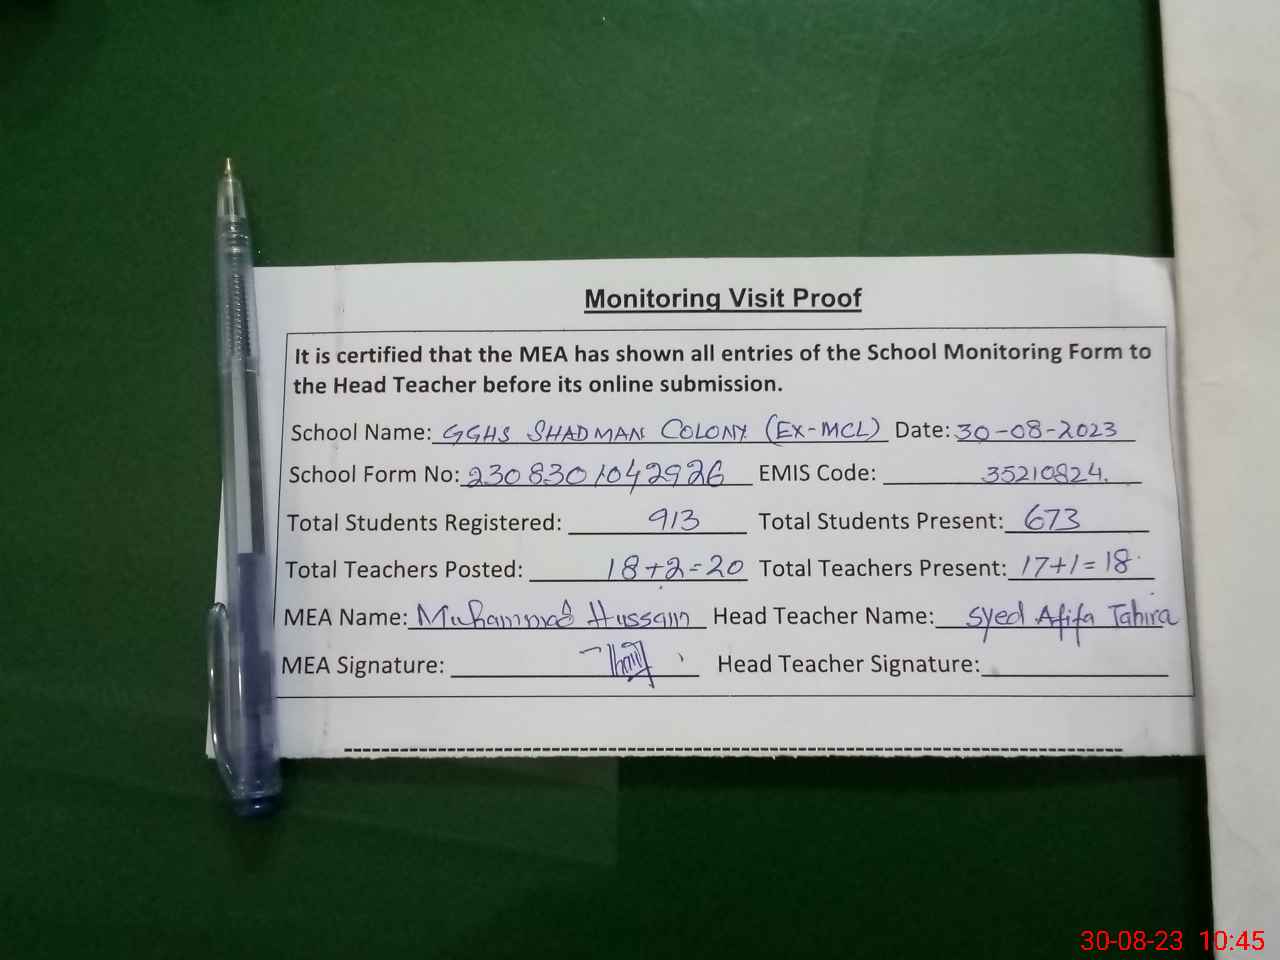 Monitoring Visit Proof
It is certified that the MEA has shown all entries of the School Monitoring Form to
the Head Teacher before its online submission.
School Name: GGHS SHADMAN COLONY (EX-MCL) Date: 30-08-2023
School Form No: 2308301042926 EMIS Code: 35210824.
Total Students Registered: 913 Total Students Present: 673
Total Teachers Posted: 18+2=20 Total Teachers Present: 17+1=18
MEA Name: Muhammad Hussain Head Teacher Name: Syed Afifa Tahira
MEA Signature: Head Teacher Signature:
30-08-23 10:45